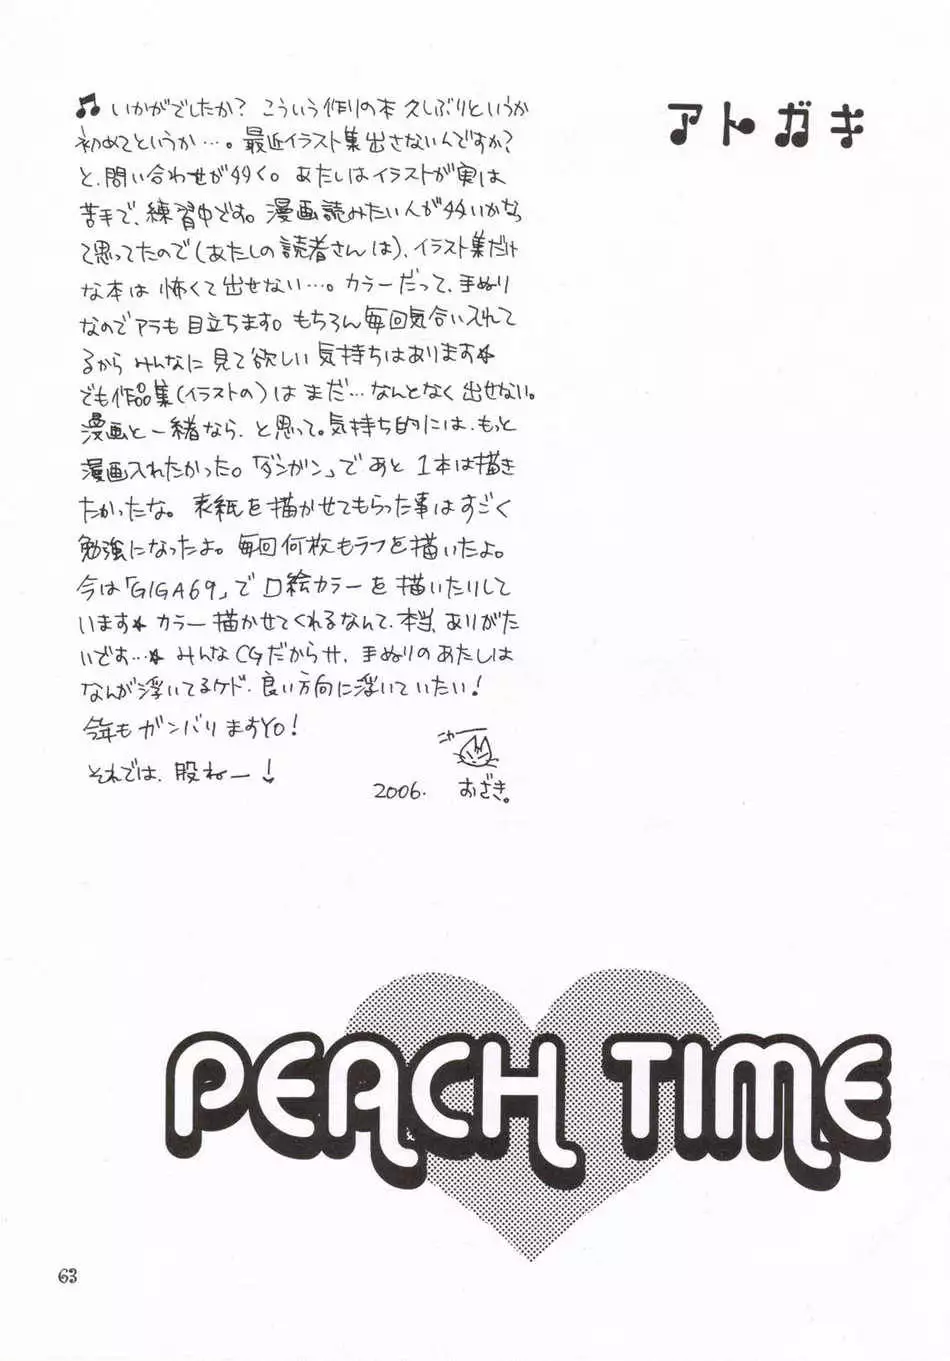 アトガキ
♫ いかがでしたか? こういう作りの本 久しぶりというか
初めてというか…。最近イラスト集出さないんですか?
と、問い合わせが多く。あたしはイラストが実は
苦手で、練習中です。漫画読みたい人が多いかなっ
て思ってたので(あたしの読者さんは)、イラスト集だけ
な本は 怖くて出せない…。カラーだって、手ぬり
なのでアラも目立ちます。もちろん毎回気合い入れて
るから みんなに見て欲しい気持ちはあります★
でも作品集(イラストの)は まだ…なんとなく出せない。
漫画と一緒なら、と思って。気持ち的には、もっと
漫画入れたかった。「ダンガン」であと 1本は描き
たかったな。表紙を描かせてもらった事はすごく
勉強になったよ。毎回何枚もラフを描いたよ。
今は「GIGA69」で口絵カラーを描いたりして
います★ カラー描かせてくれるなんて、本当、ありがた
いです…★ みんなCGだからサ、手ぬりのあたしは
なんか浮いてるケド、良い方向に浮いていたい!
今年もガンバりますYO!
それでは、股ねー!
ニャー
2006. おざき。
PEACH TIME
63